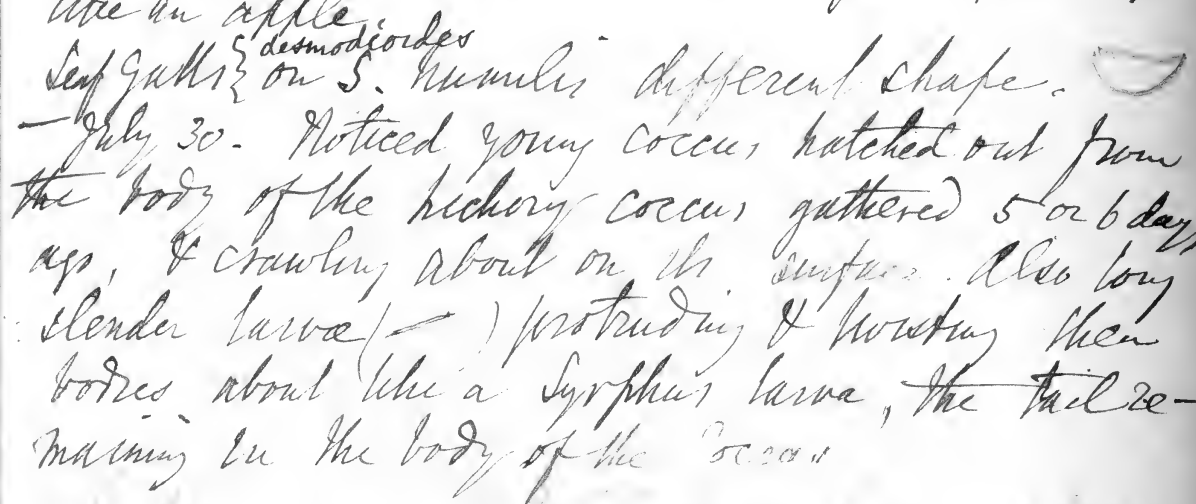 like an apple.
desmodioides
Leaf Galls { on S. humilis different shape.
— July 30 - Noticed young coccus hatched out from
the body of the hickory coccus gathered 5 or 6 days
ago, & crawling about on its surface. Also long
slender larvæ ( — ) protruding & twisting their
bodies about like a Syrphus larva, the tail re-
maining in the body of the Coccus